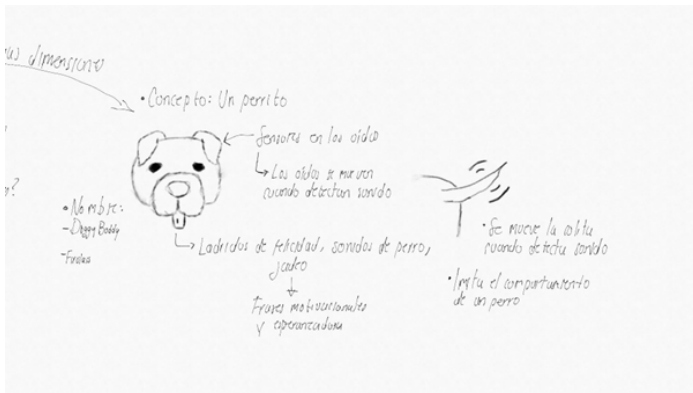 dimensions
• Concepto: Un perrito
Sensores en los oídos
Los oídos se mueven
cuando detectan sonido
?
• Nombre:
- Doggy Buddy
- Firulais
Ladridos de felicidad, sonidos de perro,
jadeo
Frases motivacionales
y esperanzadora
• Se mueve la colita
cuando detecta sonido
• Imita el comportamiento
de un perro